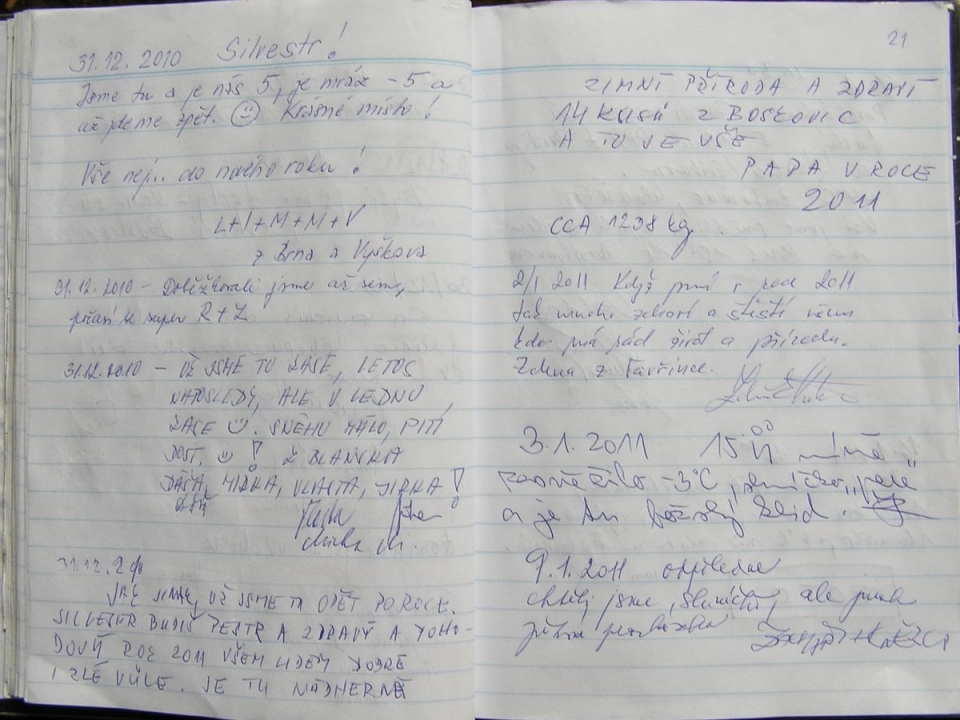 31.12. 2010 Silvestr!
Jsme tu a je nás 5, je mráz -5 a
už jdeme zpět. Krásné místo!
Vše nej.. do nového roku!
L+I+M+M+V
z Brna a Vyškova
31.12.2010 - Doběžkovali jsme až sem,
R+Z
31.12.2010 - UŽ JSME TU ZASE, LETOS
NAPOSLEDY, ALE V LEDNU
ZASE. SNĚHU MÁLO, PITÍ
DOST. ! Z BLANSKA
MIRKA, VLASTA, JIRKA!
31.12.
UŽ JSME TU OPĚT PO ROCE.
SILVESTR BUDIŽ PESTR A ZDRAVÝ A POHO-
DOVÝ ROK 2011 VŠEM LIDEM DOBRÉ
I ZLÉ VŮLE. JE TU NÁDHERNĚ
21
ZIMNÍ PŘÍRODA A ZDRAVÍ
14 KUSŮ Z BOSKOVIC
A TO JE VŠE
PAPA V ROCE
2011
CCA 1238 kg.
2/1 2011 Když první v roce 2011
tak mnoho zdraví a štěstí všem
kdo má rád život a přírodu.
Zdena z Tavřince.
3.1.2011 15 00 h mírně
zasněžilo -3°C, sluníčko
a je tu božský klid.
9.1.2011 odpoledne
chtěli jsme sluníčko, ale jinak